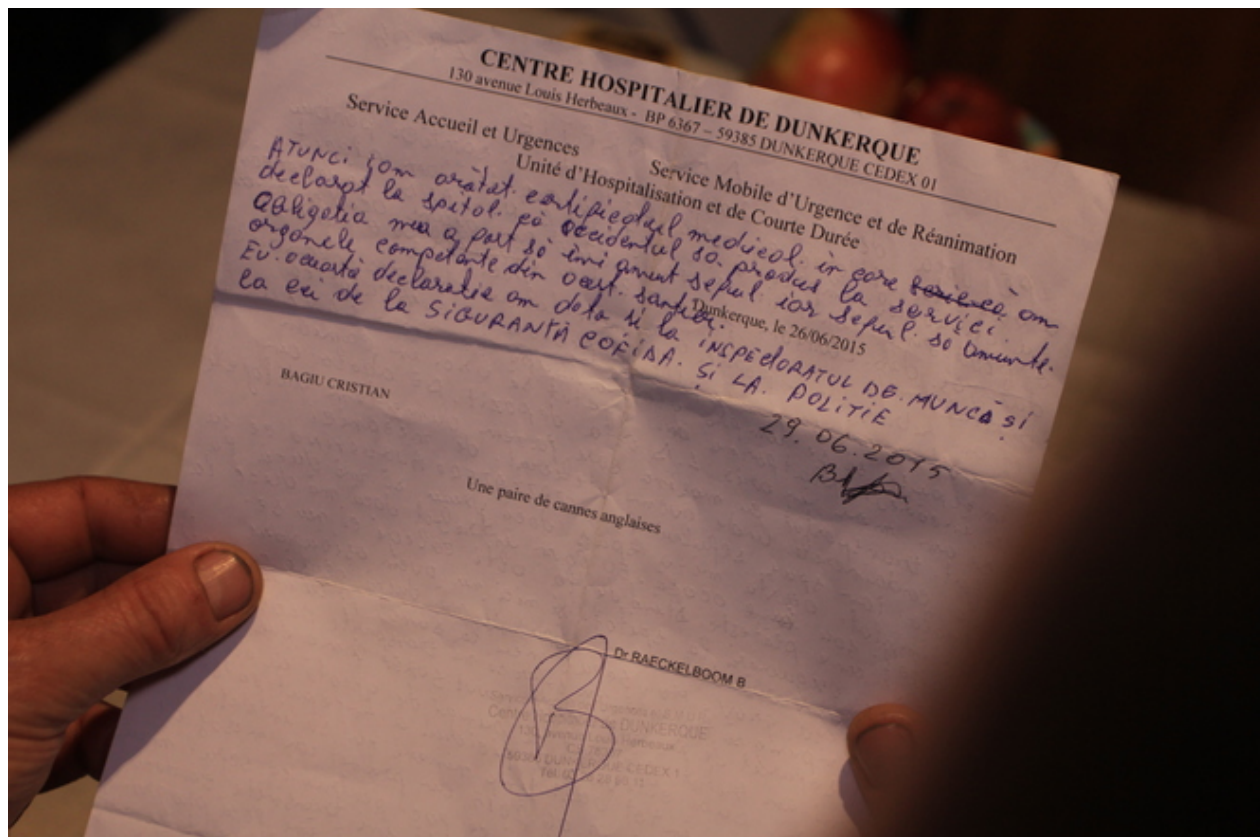 CENTRE HOSPITALIER DE DUNKERQUE
130 avenue Louis Herbeaux - BP 6367 – 59385 DUNKERQUE CEDEX 01
Service Accueil et Urgences
Service Mobile d'Urgence et de Réanimation
Unité d'Hospitalisation et de Courte Durée
ATUNCI iam arătat certificatul medical in care am
declarat la spital că accidentul sa produs la servici
obligatia mea a fost să imi anunt seful iar seful să anunte.
organele competente din acest santier.
Dunkerque, le 26/06/2015
EU. această declaratie am dat-o si la INSPECTORATUL DE. MUNCĂ SI
la cei de la SIGURANTĂ COFIDA. SI LA. POLITIE
29.06.2015
BAGIU CRISTIAN
Une paire de cannes anglaises
Dr RAECKELBOOM B
DUNKERQUE